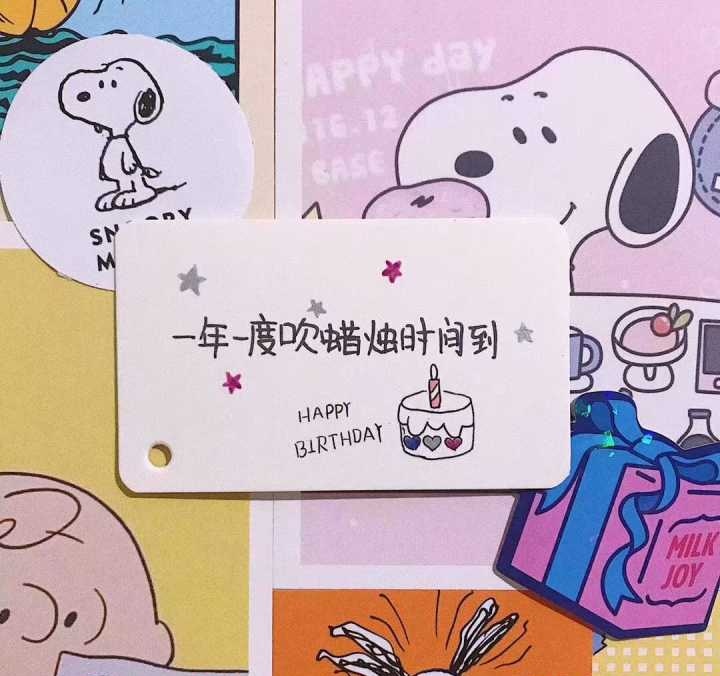 HAPPY day
16.12
CASE
SNOOPY
一年一度吹蜡烛时间到
HAPPY
BIRTHDAY
MILK
JOY